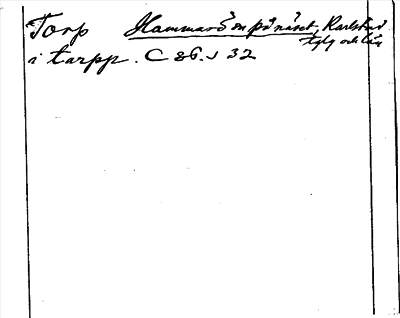 Torp Hammarö sn på näset, Karlstad
tjlg och län
i tarpp. C 86. s 32